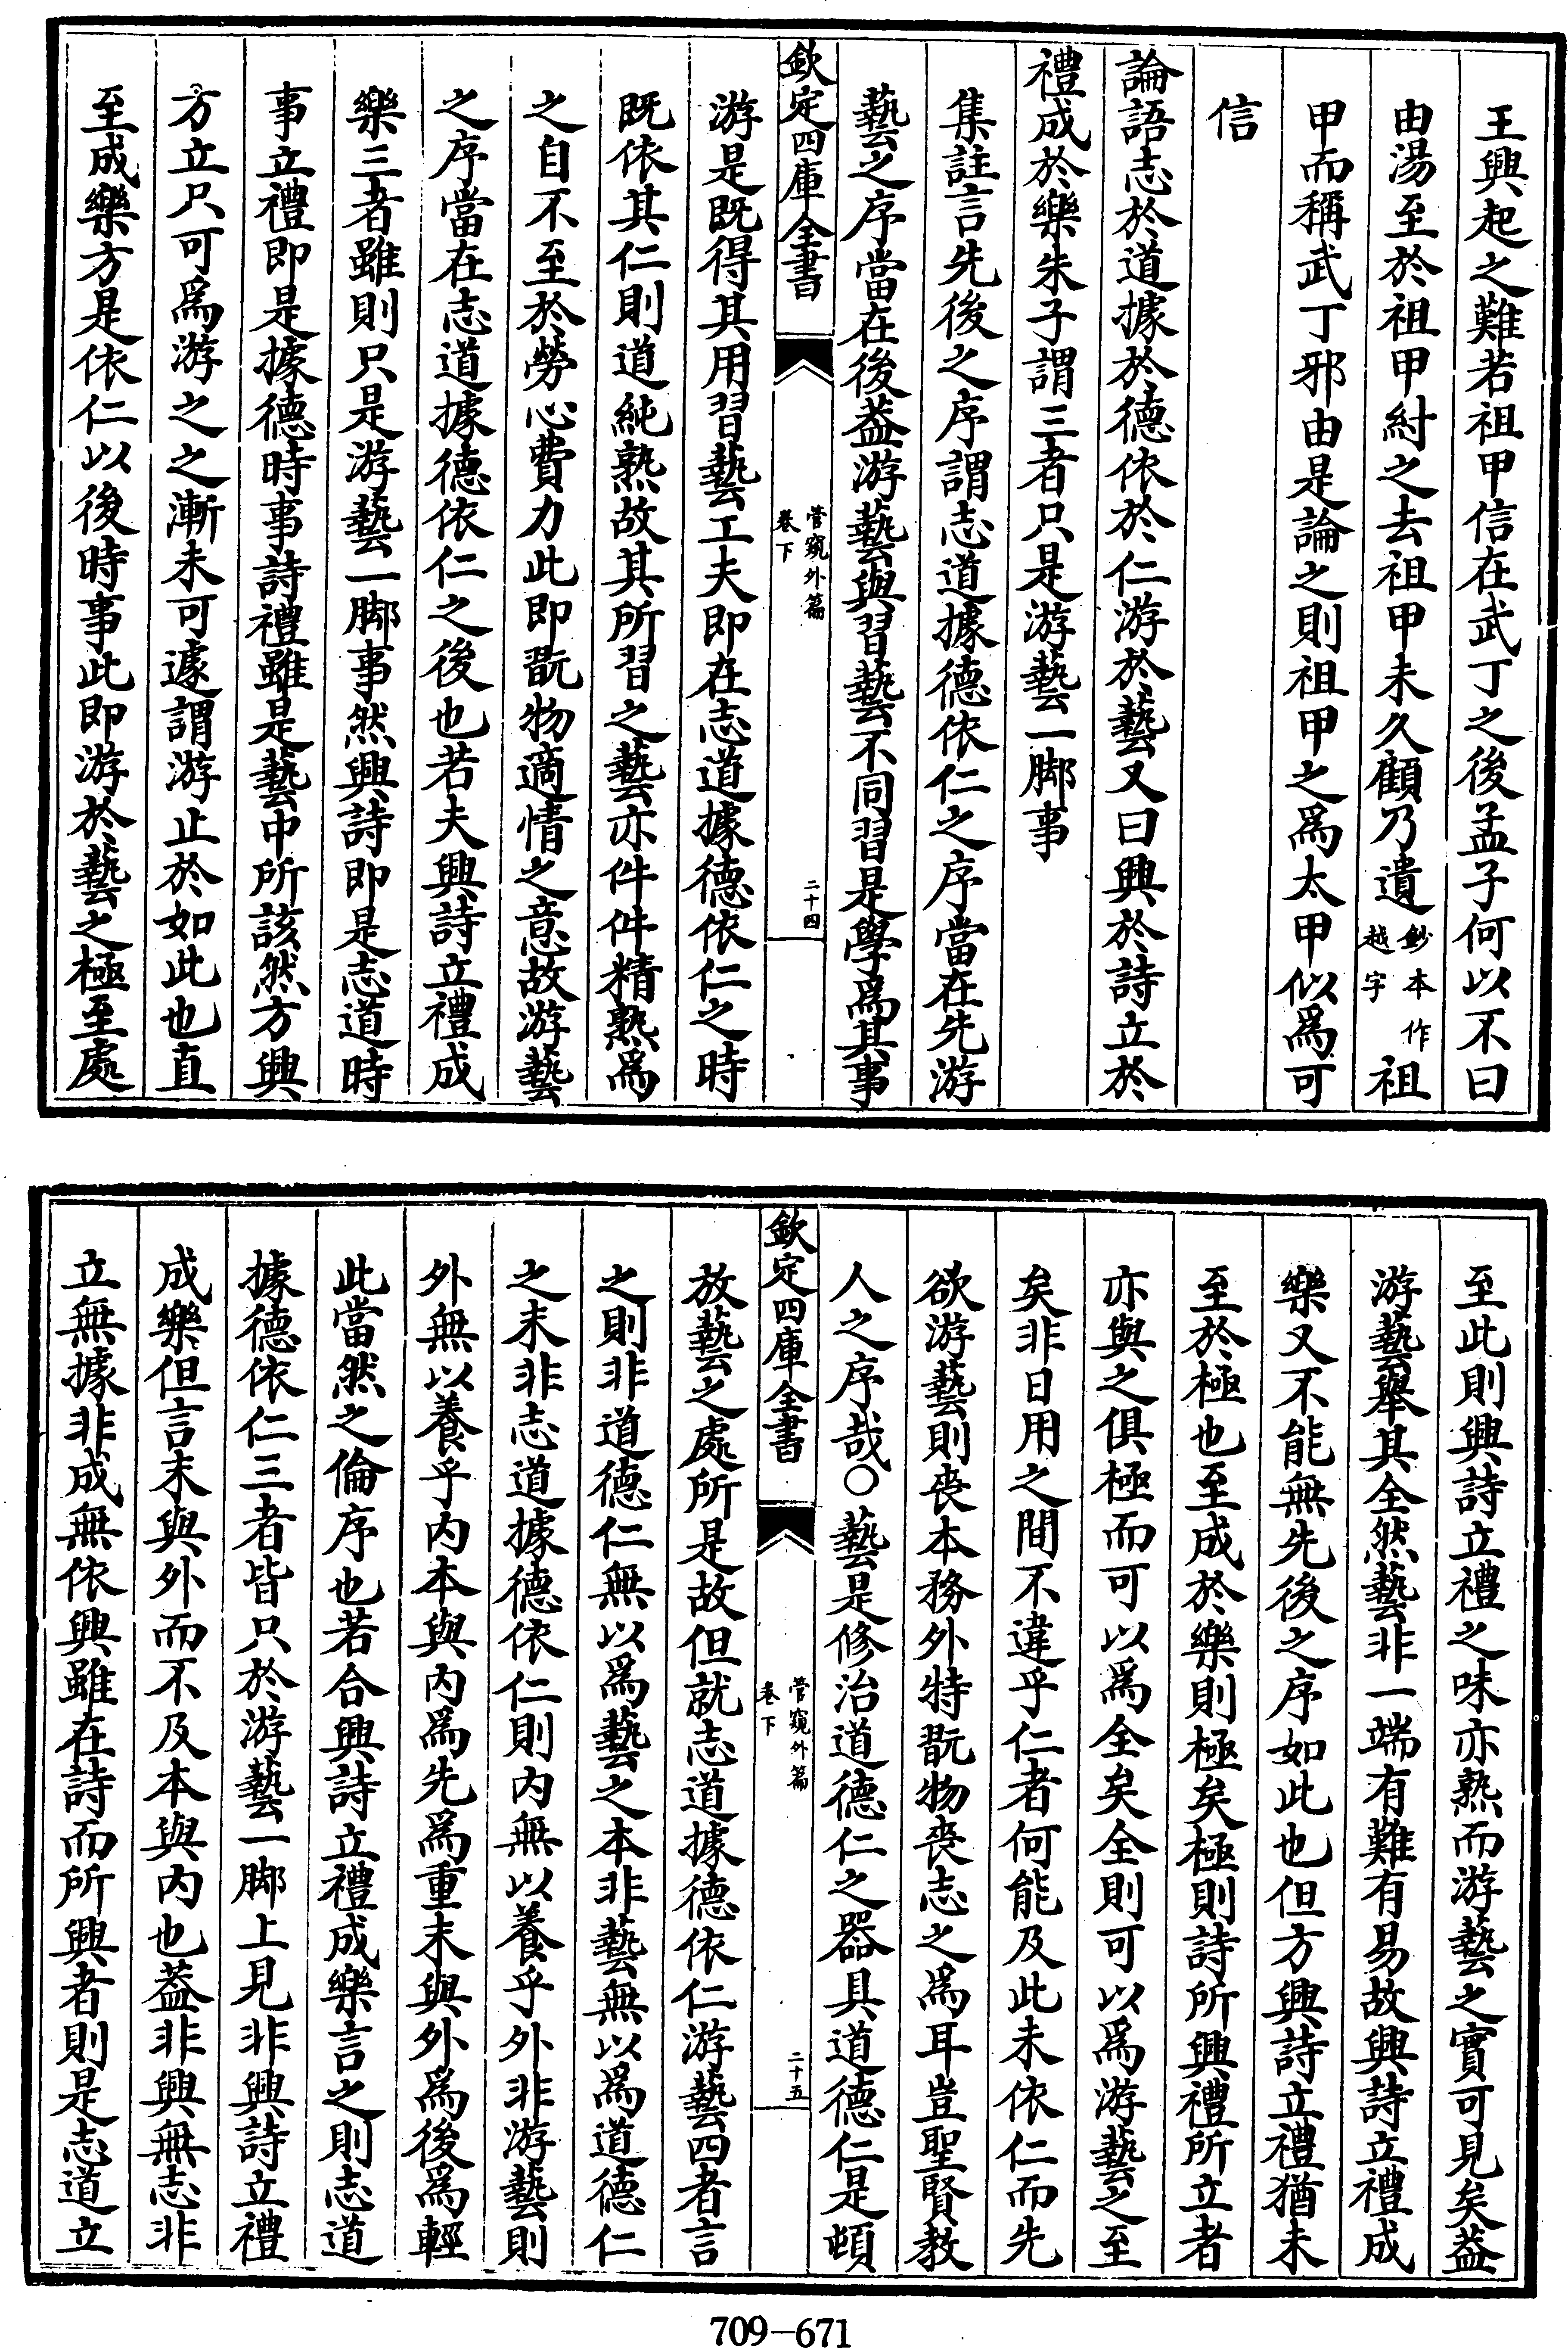 王興起之難若祖甲信在武丁之後孟子何以不曰
由湯至於祖甲紂之去祖甲未久顧乃遺鈔本作越字祖
甲而稱武丁邪由是論之則祖甲之爲太甲似爲可
信
論語志於道據於德依於仁游於藝又曰興於詩立於
禮成於樂朱子謂三者只是游藝一脚事
集註言先後之序謂志道據德依仁之序當在先游
藝之序當在後葢游藝與習藝不同習是學爲其事
欽定四庫全書
管窺外篇
卷下
二十四
游是既得其用習藝工夫即在志道據德依仁之時
既依其仁則道純熟故其所習之藝亦件件精熟爲
之自不至於勞心費力此即翫物適情之意故游藝
之序當在志道據德依仁之後也若夫興詩立禮成
樂三者雖則只是游藝一脚事然興詩即是志道時
事立禮即是據德時事詩禮雖是藝中所該然方興
方立只可爲游之之漸未可遽謂游止於如此也直
至成樂方是依仁以後時事此即游於藝之極至處
至此則興詩立禮之味亦熟而游藝之實可見矣葢
游藝舉其全然藝非一端有難有易故興詩立禮成
樂又不能無先後之序如此也但方興詩立禮猶未
至於極也至成於樂則極矣極則詩所興禮所立者
亦與之俱極而可以爲全矣全則可以爲游藝之至
矣非日用之間不違乎仁者何能及此未依仁而先
欲游藝則喪本務外特翫物喪志之爲耳豈聖賢教
人之序哉○藝是修治道德仁之器具道德仁是頓
欽定四庫全書
管窺外篇
卷下
二十五
放藝之處所是故但就志道據德依仁游藝四者言
之則非道德仁無以爲藝之本非藝無以爲道德仁
之末非志道據德依仁則内無以養乎外非游藝則
外無以養乎内本與内爲先爲重末與外爲後爲輕
此當然之倫序也若合興詩立禮成樂言之則志道
據德依仁三者皆只於游藝一脚上見非興詩立禮
成樂但言末與外而不及本與内也葢非興無志非
立無據非成無依興雖在詩而所興者則是志道立
709-671